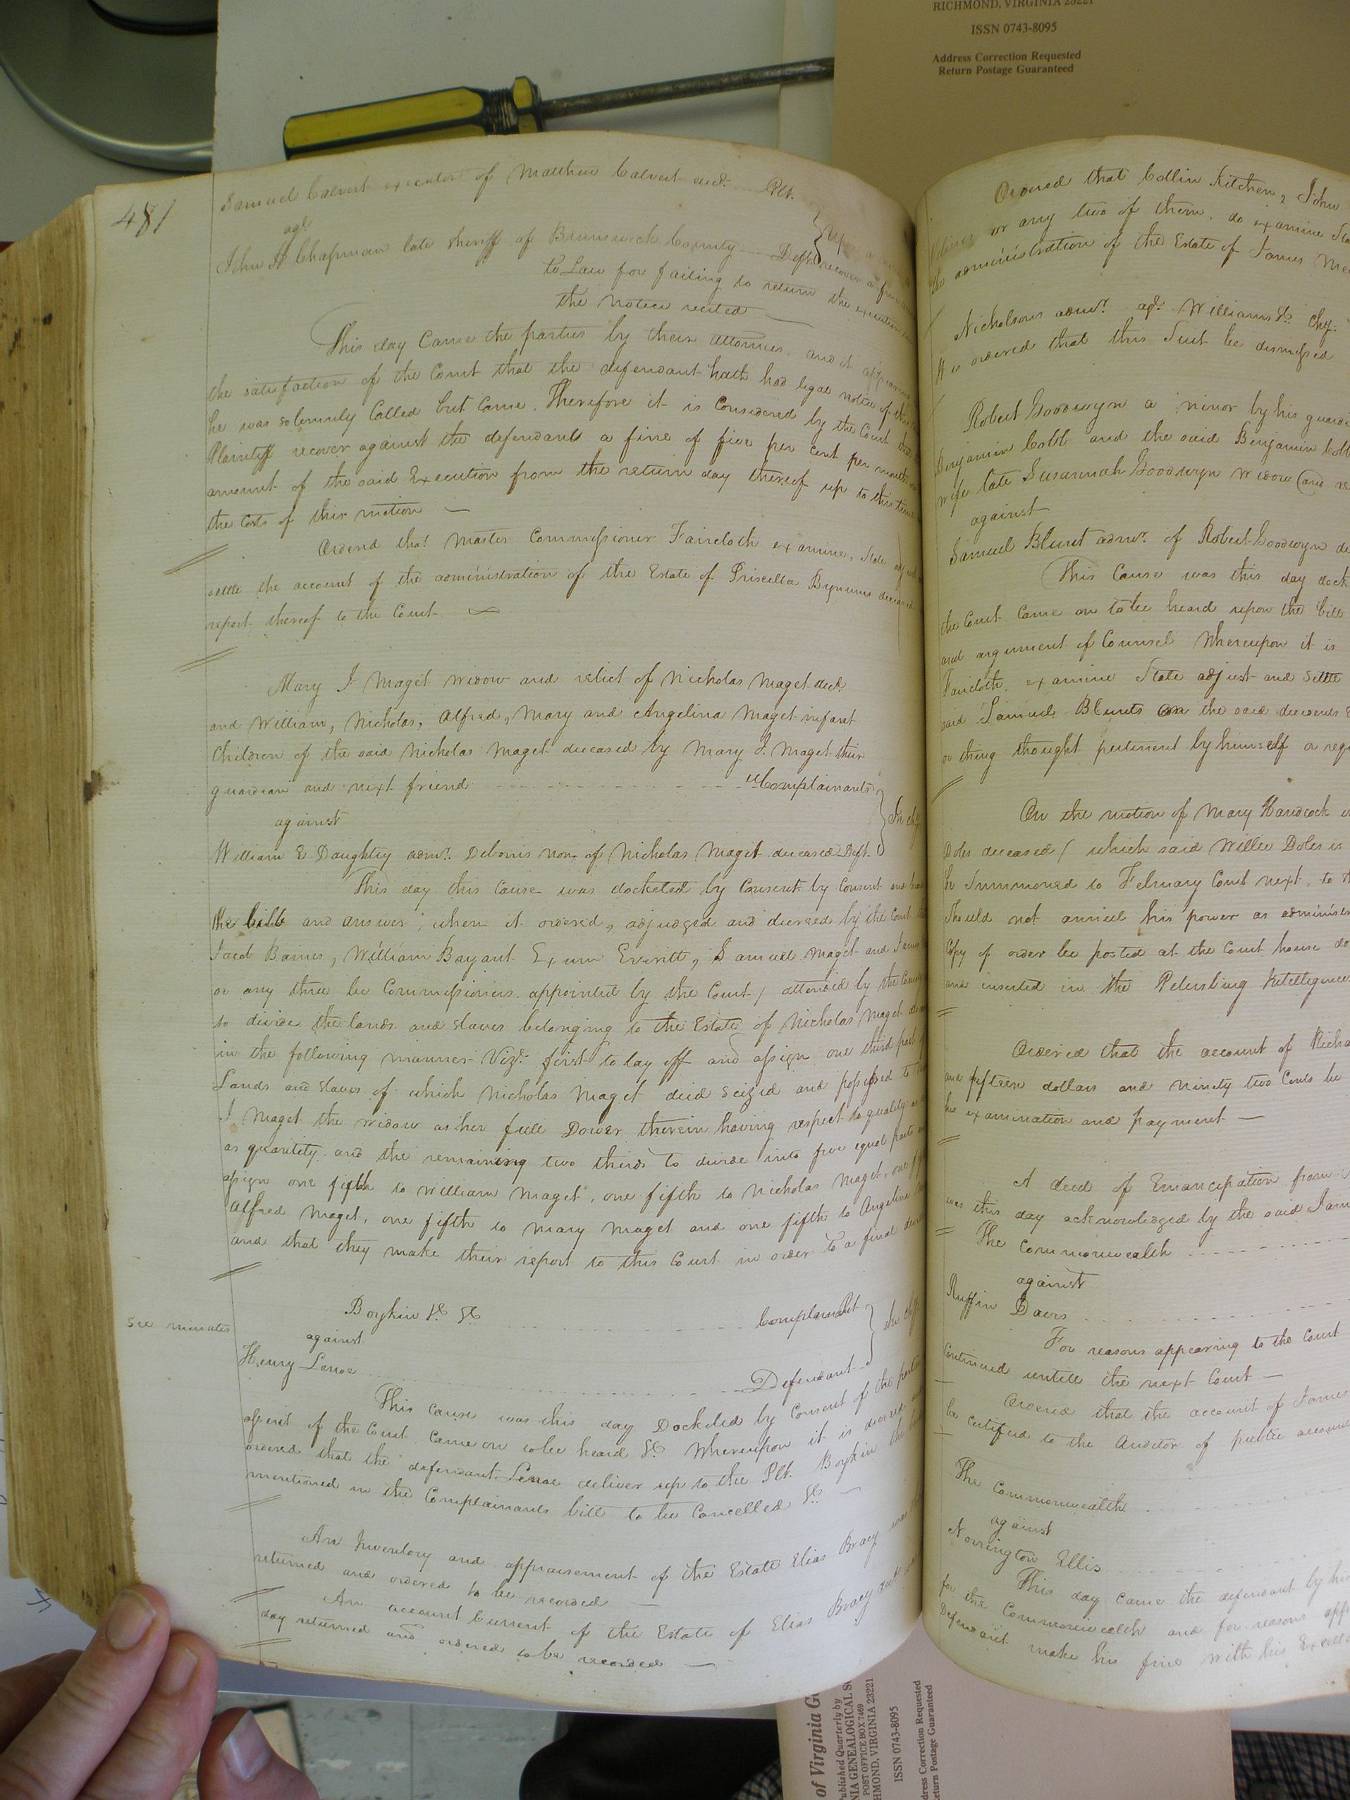 RICHMOND, VIRGINIA 23221
ISSN 0743-8095
Address Correction Requested
Return Postage Guaranteed
481
Samuel Calvert executor of Matthew Calvert decd. Plt.
agt
John H Chapman late Sheriff of Brunswick County Deft
to Law for failing to return the execution
the notice recited
This day Came the parties by their attornies, and it appearing
the satisfaction of the Court that the defendant hath had legal notice of
he was solemnly Called but Came. Therefore it is Considered by the Court that
Plaintiff recover against the defendants a fine of five per cent per month
amount of the said Execution from the return day thereof up to this
the Costs of this motion
Ordered that Master Commissioner Faircloth examine, State
settle the account of the administration of the Estate of Priscilla Bynum deceased
report thereof to the Court
Mary I Maget widow and relict of Nicholas Maget decd
and William, Nicholas, Alfred, Mary and Angelina Maget infant
Children of the said Nicholas Maget deceased by Mary I. Maget their
guardian and next friend Complainants
against
William E Daughtry admr. Debonis non of Nicholas Maget deceased Deft.
This day this cause was docketed by Consent by Consent and
the bill and answer, when it ordered, adjudged and decreed by the Court
Jacob Barnes, William Bryant Exum Everitt, Samuel Maget and James
or any three be Commissioners appointed by the Court / attended by the
to divide the lands and slaves belonging to the Estate of Nicholas Maget
in the following manner Vizt. first to lay off and assign one third part
Lands and slaves of which Nicholas Maget died seized and possessed to
I Maget the widow as her full Dower therein having respect to quality as
as quantity and the remaining two thirds to divide into five equal parts
assign one fifth to William Maget, one fifth to Nicholas Maget, one
Alfred Maget, one fifth to Mary Maget and one fifth to Angelina
and that they make their report to this Court in order to a final
Boykin &c &c Complainant
see minutes
against
Henry Lenoe Defendant
This cause was this day Docketed by Consent of the parties
assent of the Court Came on to be heard &c Whereupon it is decreed
ordered that the defendant Lenoe deliver up to the Plt. Boykin the
mentioned in the Complainants bill to be Cancelled &c
An Inventory and appraisement of the Estate Elias Bracy was
returned and ordered to be recorded
An account Current of the Estate of Elias Bracy
day returned and ordered to be recorded
Ordered that Collin Kitchen, John
or any two of them, do examine
the administration of the Estate of James
Nicholsons admr. agt. Williams &c chy.
It is ordered that this Suit be dismissed
Robert Goodwyn a minor by his
Benjamin Cobb and the said Benjamin
wife late Susannah Goodwyn widow and
against
Samuel Blunt admr. of Robert Goodwyn
This Cause was this day
the Court Came on to be heard upon the bill
and argument of Counsel Whereupon it is
Faircloth examine State adjust and settle
said Samuel Blunts on the said decedents
or thing thought pertinent by himself or
On the motion of Mary Handcock
Doles deceased / which said Willie Doles is
be Summoned to February Court next, to
Should not annul his power as
Copy of order be posted at the Court house
and inserted in the Petersburg Intelligencer
Ordered that the account of
and fifteen dollars and ninety two Cents be
for examination and payment
A deed of Emancipation from
was this day acknowledged by the said
The Commonwealth
against
Ruffin Davis
For reasons appearing to the Court
Continued untill the next Court
Ordered that the account of James
be certified to the Auditor of public
The Commonwealth
against
Norrington Ellis
This day came the defendant by his
for the Commonwealth and for reasons
Defendant make his fine with his
of Virginia
Published Quarterly by
GENEALOGICAL
POST OFFICE BOX 7469
RICHMOND, VIRGINIA 23221
ISSN 0743-8095